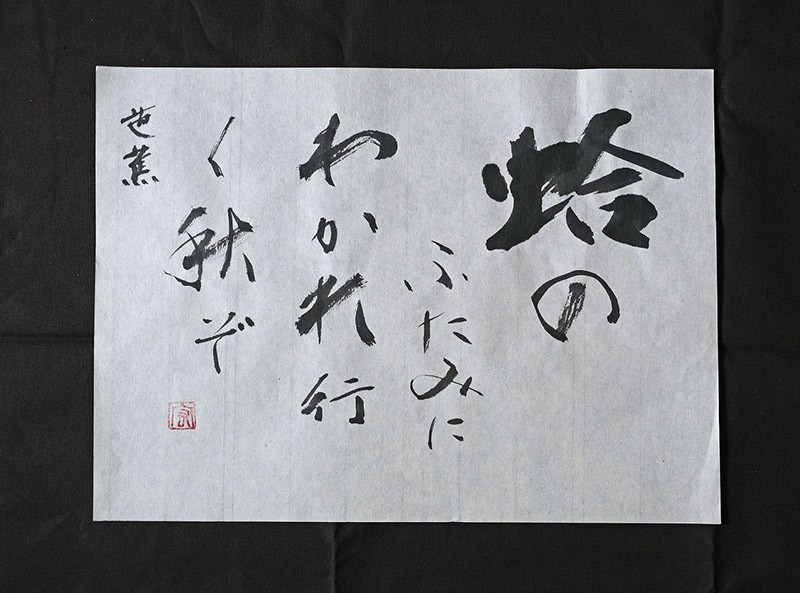 蛤の
ふたみに
わかれ行
く秋ぞ
芭蕉